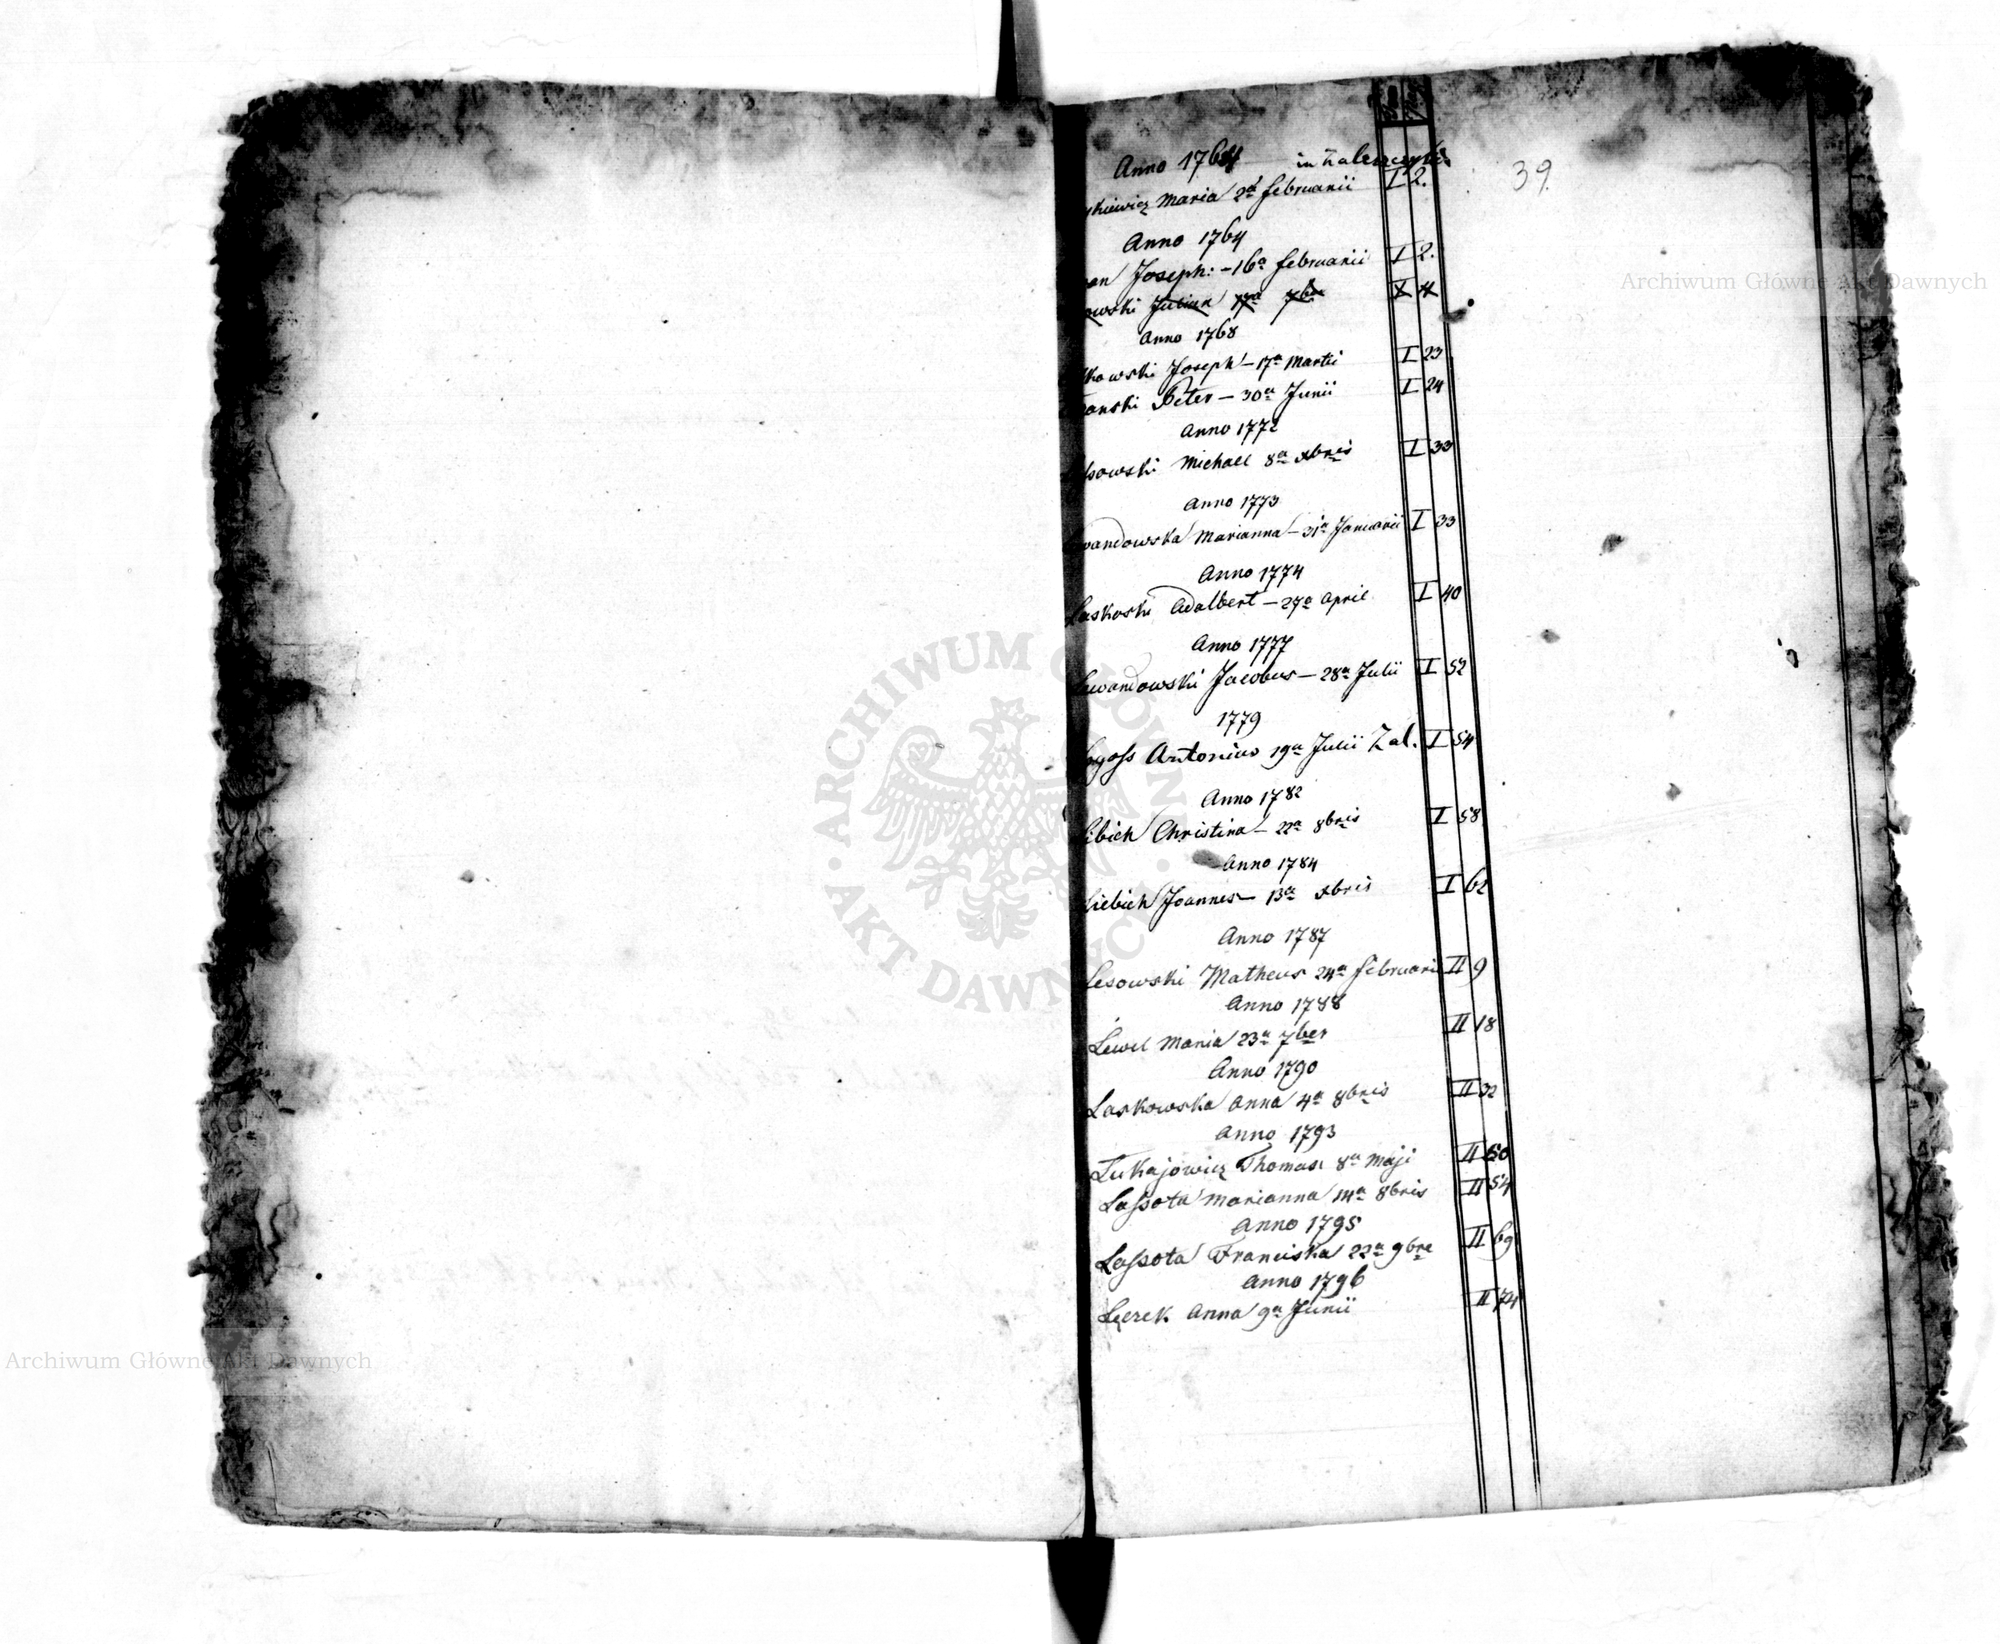 Tom Pag
Anno 1764 in Zaleszczyki
Maria 2a februarii I 2.
39.
Anno 1764
Joseph: - 16a februarii I 2.
owski Julian 17a 7bris X 4
Anno 1768
kowski Joseph - 17a Martii I 23
anski Peter - 30a Junii I 24
Anno 1772
sowski Michael 8a xbris I 33
Anno 1773
wandowska Marianna - 31a Januarii I 33
Anno 1774
Laskoski Adalbert - 27a April I 40
Anno 1777
Lewandowski Jacobus - 28a Julii I 52
1779
Antonius 19a Julii Zal. I 54
Anno 1782
Libich Christina - 22a 8bris I 58
Anno 1784
Liebich Joannes - 13a xbris I 62
Anno 1787
Lesowski Matheus 24a februarii II 9
Anno 1788
Lewel Maria 23a 7ber II 18
Anno 1790
Laskowska Anna 4a 8bris II 32
Anno 1793
Lukajowicz Thomas 8a Maji II 50
Laſsota Marianna 14a 8bris II 54
Anno 1795
Laſsota Franciska 22a 9bre II 69
Anno 1796
Lerek Anna 9a Junii II 74
Archiwum Główne Akt Dawnych
Archiwum Główne Akt Dawnych
ARCHIWUM GŁÓWNE · AKT DAWNYCH ·